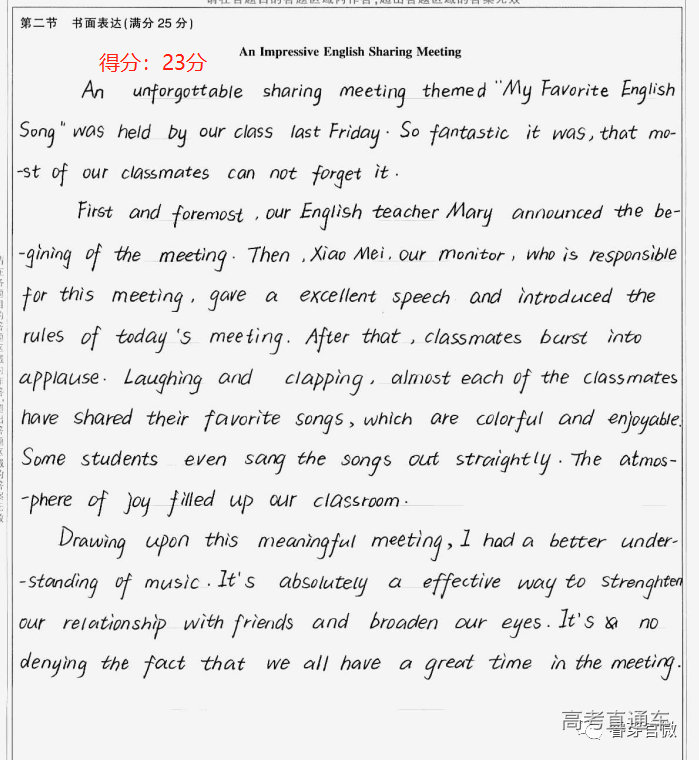 第二节 书面表达(满分25分)
An Impressive English Sharing Meeting
得分：23分
An unforgottable sharing meeting themed "My Favorite English
Song" was held by our class last Friday. So fantastic it was, that mo-
-st of our classmates can not forget it.
First and foremost, our English teacher Mary announced the be-
-gining of the meeting. Then, Xiao Mei, our monitor, who is responsible
for this meeting, gave a excellent speech and introduced the
rules of today's meeting. After that, classmates burst into
applause. Laughing and clapping, almost each of the classmates
have shared their favorite songs, which are colorful and enjoyable.
Some students even sang the songs out straightly. The atmos-
-phere of joy filled up our classroom.
Drawing upon this meaningful meeting, I had a better under-
-standing of music. It's absolutely a effective way to strenghten
our relationship with friends and broaden our eyes. It's no
denying the fact that we all have a great time in the meeting.
高考直通车